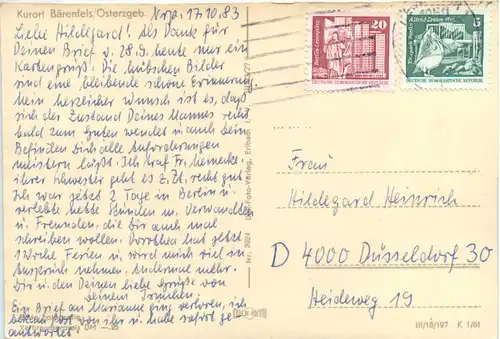 Kurort Bärenfels/Osterzgeb.
17.10.83
Liebe Hildegard! Als Dank für
Deinen Brief v. 28.9. heute nur ein
Kartengruß. Die hübschen Bilder
sind eine bleibende schöne Erinnerung.
Mein herzlicher Wunsch ist es, daß
sich der Zustand Deines Mannes recht
bald zum Guten wendet u. auch Dein
Befinden Dich alle Anforderungen
meistern läßt. Ich traf Fr.
ihrer Schwester geht es z. Zt. recht gut.
Ich war jetzt 2 Tage in Berlin u.
verlebte nette Stunden m. Verwandten
u. Freunden, die Dir auch mal
schreiben wollen. Dorothea hat jetzt
1 Woche Ferien u. wird mich viel in
Anspruch nehmen. Andermal mehr.
Dir u. den Deinen liebe Grüße von
Deinem
Ein Brief an Marianne ging verloren, ich
bekam Post von ihr u. habe sofort ge-
antwortet.
Verbraucherpreis DM —.25
20
DEUTSCHE DEMOKRATISCHE REPUBLIK
15
DEUTSCHE DEMOKRATISCHE REPUBLIK
Frau
Hildegard Heinrich
D 4000 Düsseldorf 30
Heideweg 19
III/18/197 K 1/81